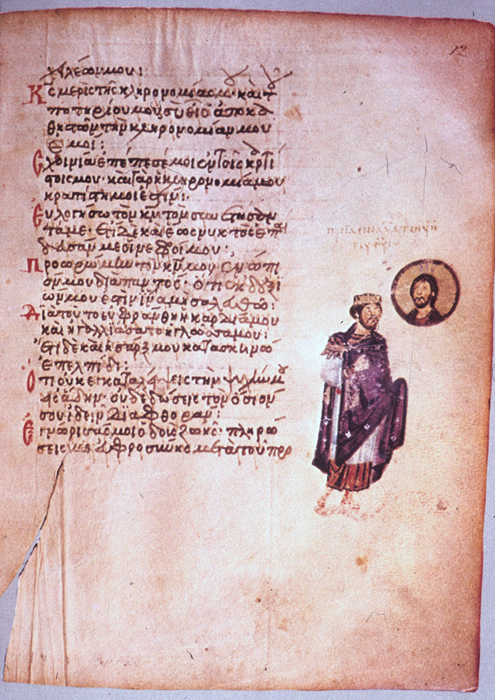 12
χειλέων μου:
Κς μερὶς τῆς κληρονομίας μου καὶ τοῦ
ποτηρίου μου σὺ εἶ ὁ ἀποκα
θιστῶν τὴν κληρονομίαν μου
ἐμοί:
Σχοινία ἐπέπεσέ μοι ἐν τοῖς κρατί
στοις μου· καὶ γὰρ ἡ κληρονομία μου
κρατίστη μοι ἐστίν:
Εὐλογήσω τὸν κν τὸν συνετίσαν
τά με· ἔτι δὲ καὶ ἕως νυκτὸς ἐπαί
δευσάν με οἱ νεφροί μου:
Προωρώμην τὸν κν μου ἐνώπι
όν μου διαπαντός· ὅτι ἐκ δεξι
ῶν μου ἐστὶν ἵνα μὴ σαλευθῶ:
Διὰ τοῦτο εὐφράνθη ἡ καρδία μου
καὶ ἠγαλλιάσατο ἡ γλῶσσα μου:
ἔτι δὲ καὶ ἡ σάρξ μου κατασκηνώσει
ἐπ' ἐλπίδι:
Ὅτι οὐκ ἐγκαταλείψεις τὴν ψυχήν μου
εἰς ᾅδην· οὐδὲ δώσεις τὸν ὅσιόν
σου ἰδεῖν διαφθοράν:
Ἐγνώρισάς μοι ὁδοὺς ζωῆς· πληρώ
σεις με εὐφροσύνης μετὰ τοῦ προ